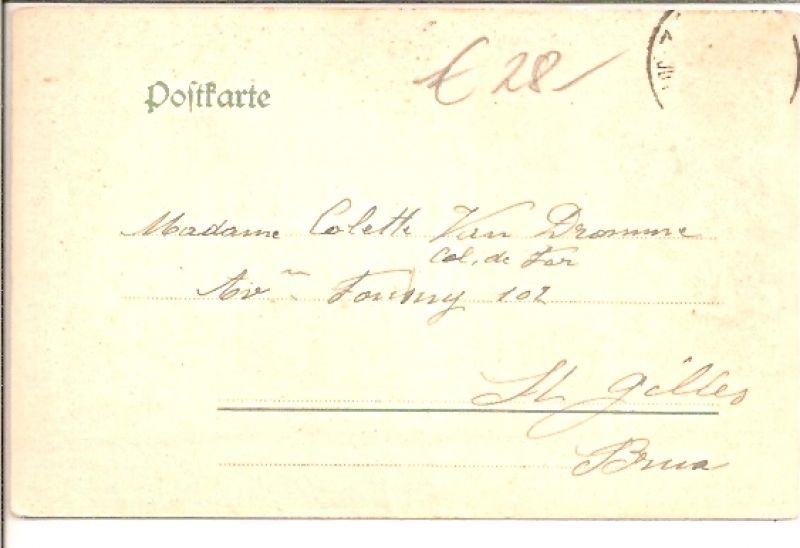 Postkarte
€ 28
JU
Madame Colette Van Dromme
Col. de Fer
Av 102
St Gilles
Brux